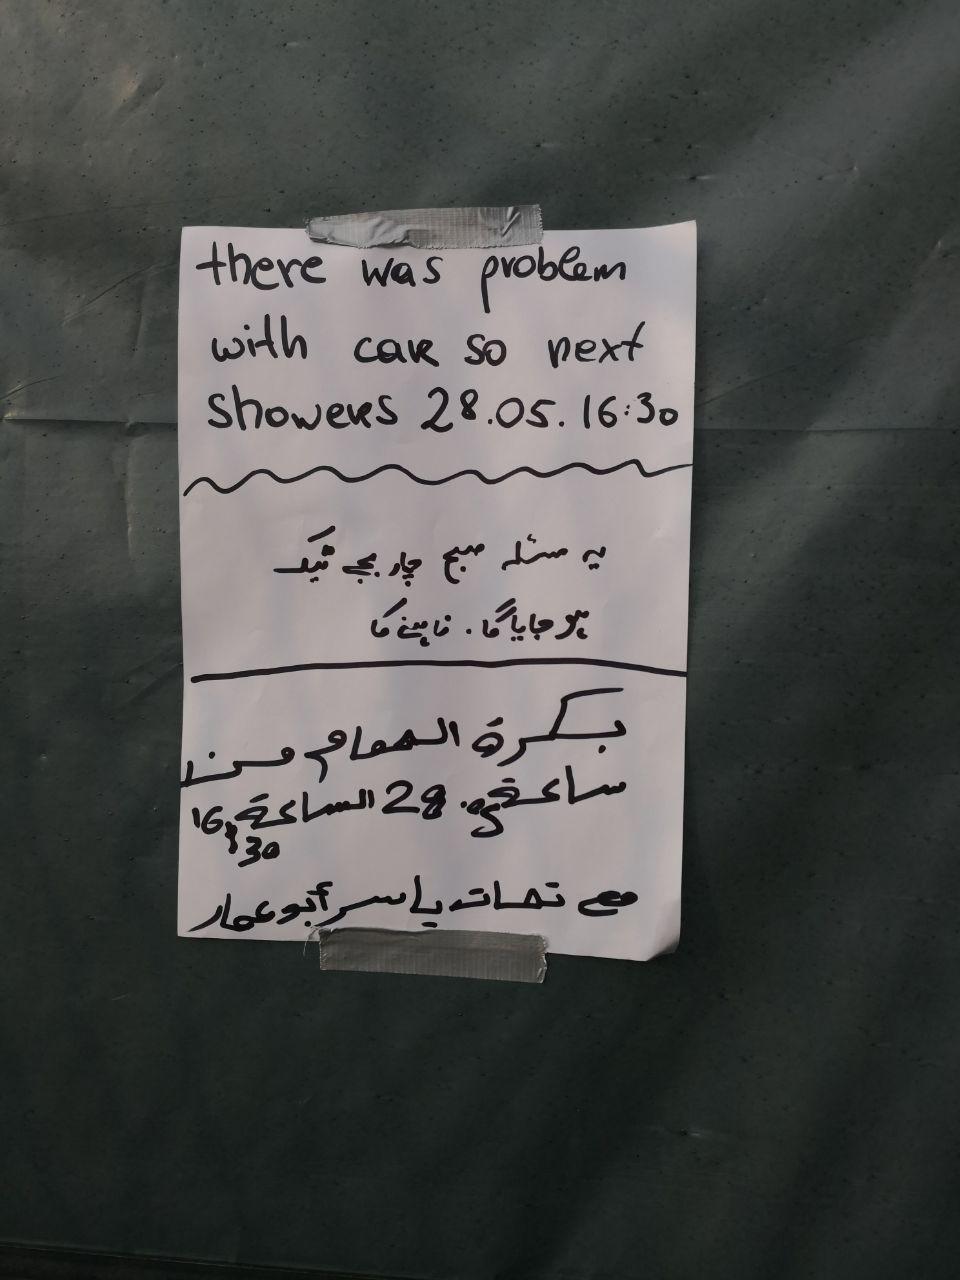 there was problem
with car so next
showers 28.05. 16:30
یہ مسئلہ صبح چار بجے ٹیک
ہو جایا گا. نا ہنے کا
بكرة الحمام من
ساعة 28.05 الساعة 16
و 30
مع تحيات ياسر أبو عمار